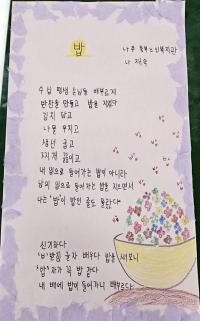 밥
나주 동부노인복지관
나
수십 평생 손님들 배부르게
반찬을 만들고 밥을 지었다
김치 담고
나물 무치고
생선 굽고
찌개 끓이고
내 입으로 들어가는 밥이 아니라
남의 입으로 들어가는 밥을 지으면서
나는 '밥'이 밥인 줄도 몰랐다
신기하다
'ㅂ'받침 글자 배우다 밥을 써보니
'밥'자가 꼭 밥 같다
내 배에 밥이 들어가니 배부르다